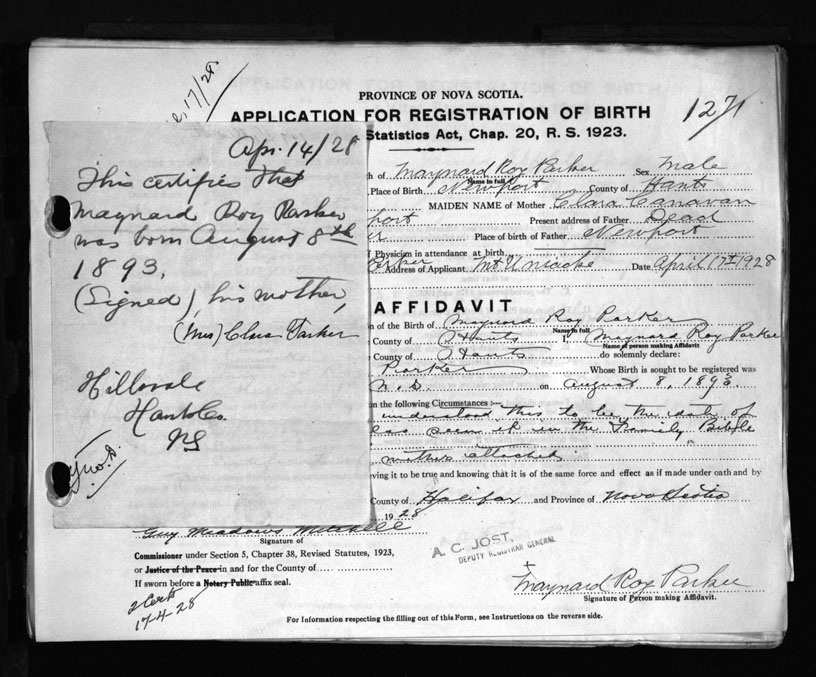 17/28
PROVINCE OF NOVA SCOTIA.
APPLICATION FOR REGISTRATION OF BIRTH
1271
Statistics Act, Chap. 20, R. S. 1923.
Apr. 14/28
This certifies that
Maynard Roy Parker
was born August 8th
1893,
(Signed), his mother,
(Mrs) Clara Parker
Hillsvale
Hants Co.
NS
th of Maynard Roy Parker Sex Male
Name in full
Place of Birth Newport County of Hants
MAIDEN NAME of Mother Clara Canavan
port Present address of Father Dead
er Place of birth of Father Newport
Physician in attendance at birth
Parker Address of Applicant Mt Uniacke Date April 17th 1928
AFFIDAVIT
n of the Birth of Maynard Roy Parker
Name in full
County of Hants I, Maynard Roy Parker
Name of person making Affidavit
County of Hants do solemnly declare:
Parker Whose Birth is sought to be registered was
N.S. on August 8, 1893
n the following Circumstances:—
understood this to be the date of
also seen it in the Family Bible
mother's attached.
ving it to be true and knowing that it is of the same force and effect as if made under oath and by
County of Halifax and Province of Nova Scotia
1928
Guy Meadows Mitchell
Signature of
Commissioner under Section 5, Chapter 38, Revised Statutes, 1923,
or Justice of the Peace in and for the County of
If sworn before a Notary Public affix seal.
A. C. JOST,
DEPUTY REGISTRAR GENERAL
Maynard Roy Parker
Signature of Person making Affidavit.
17-4-28
For Information respecting the filling out of this Form, see Instructions on the reverse side.